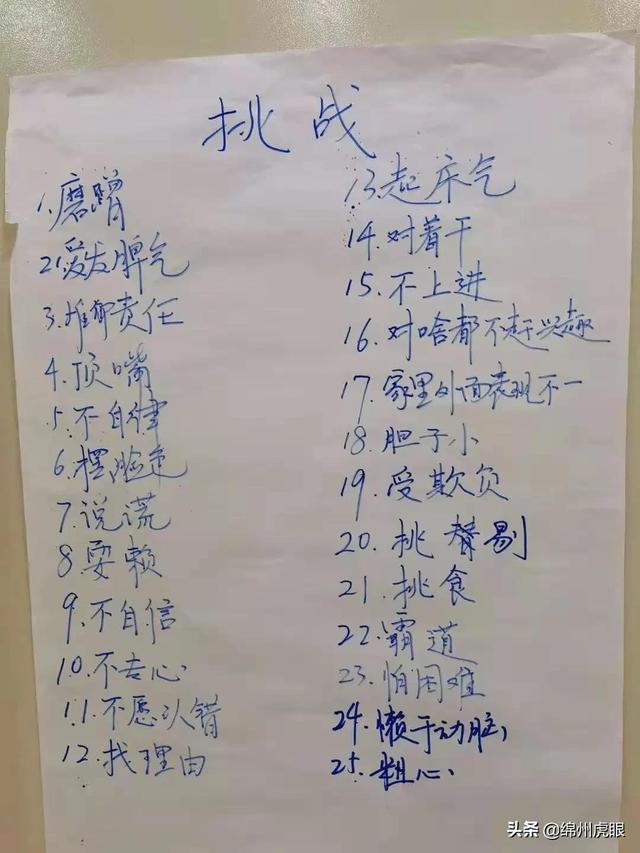 挑战
1.磨蹭
2.爱发脾气
3.推卸责任
4.顶嘴
5.不自律
6.摆脸色
7.说谎
8耍赖
9.不自信
10.不专心
11.不愿认错
12.找理由
13.起床气
14.对着干
15.不上进
16.对啥都不感兴趣
17.家里外面表现不一
18.胆子小
19.受欺负
20.挑剔
21.挑食
22.霸道
23.怕困难
24.懒于动脑,
25.粗心.
头条 @绵州虎眼